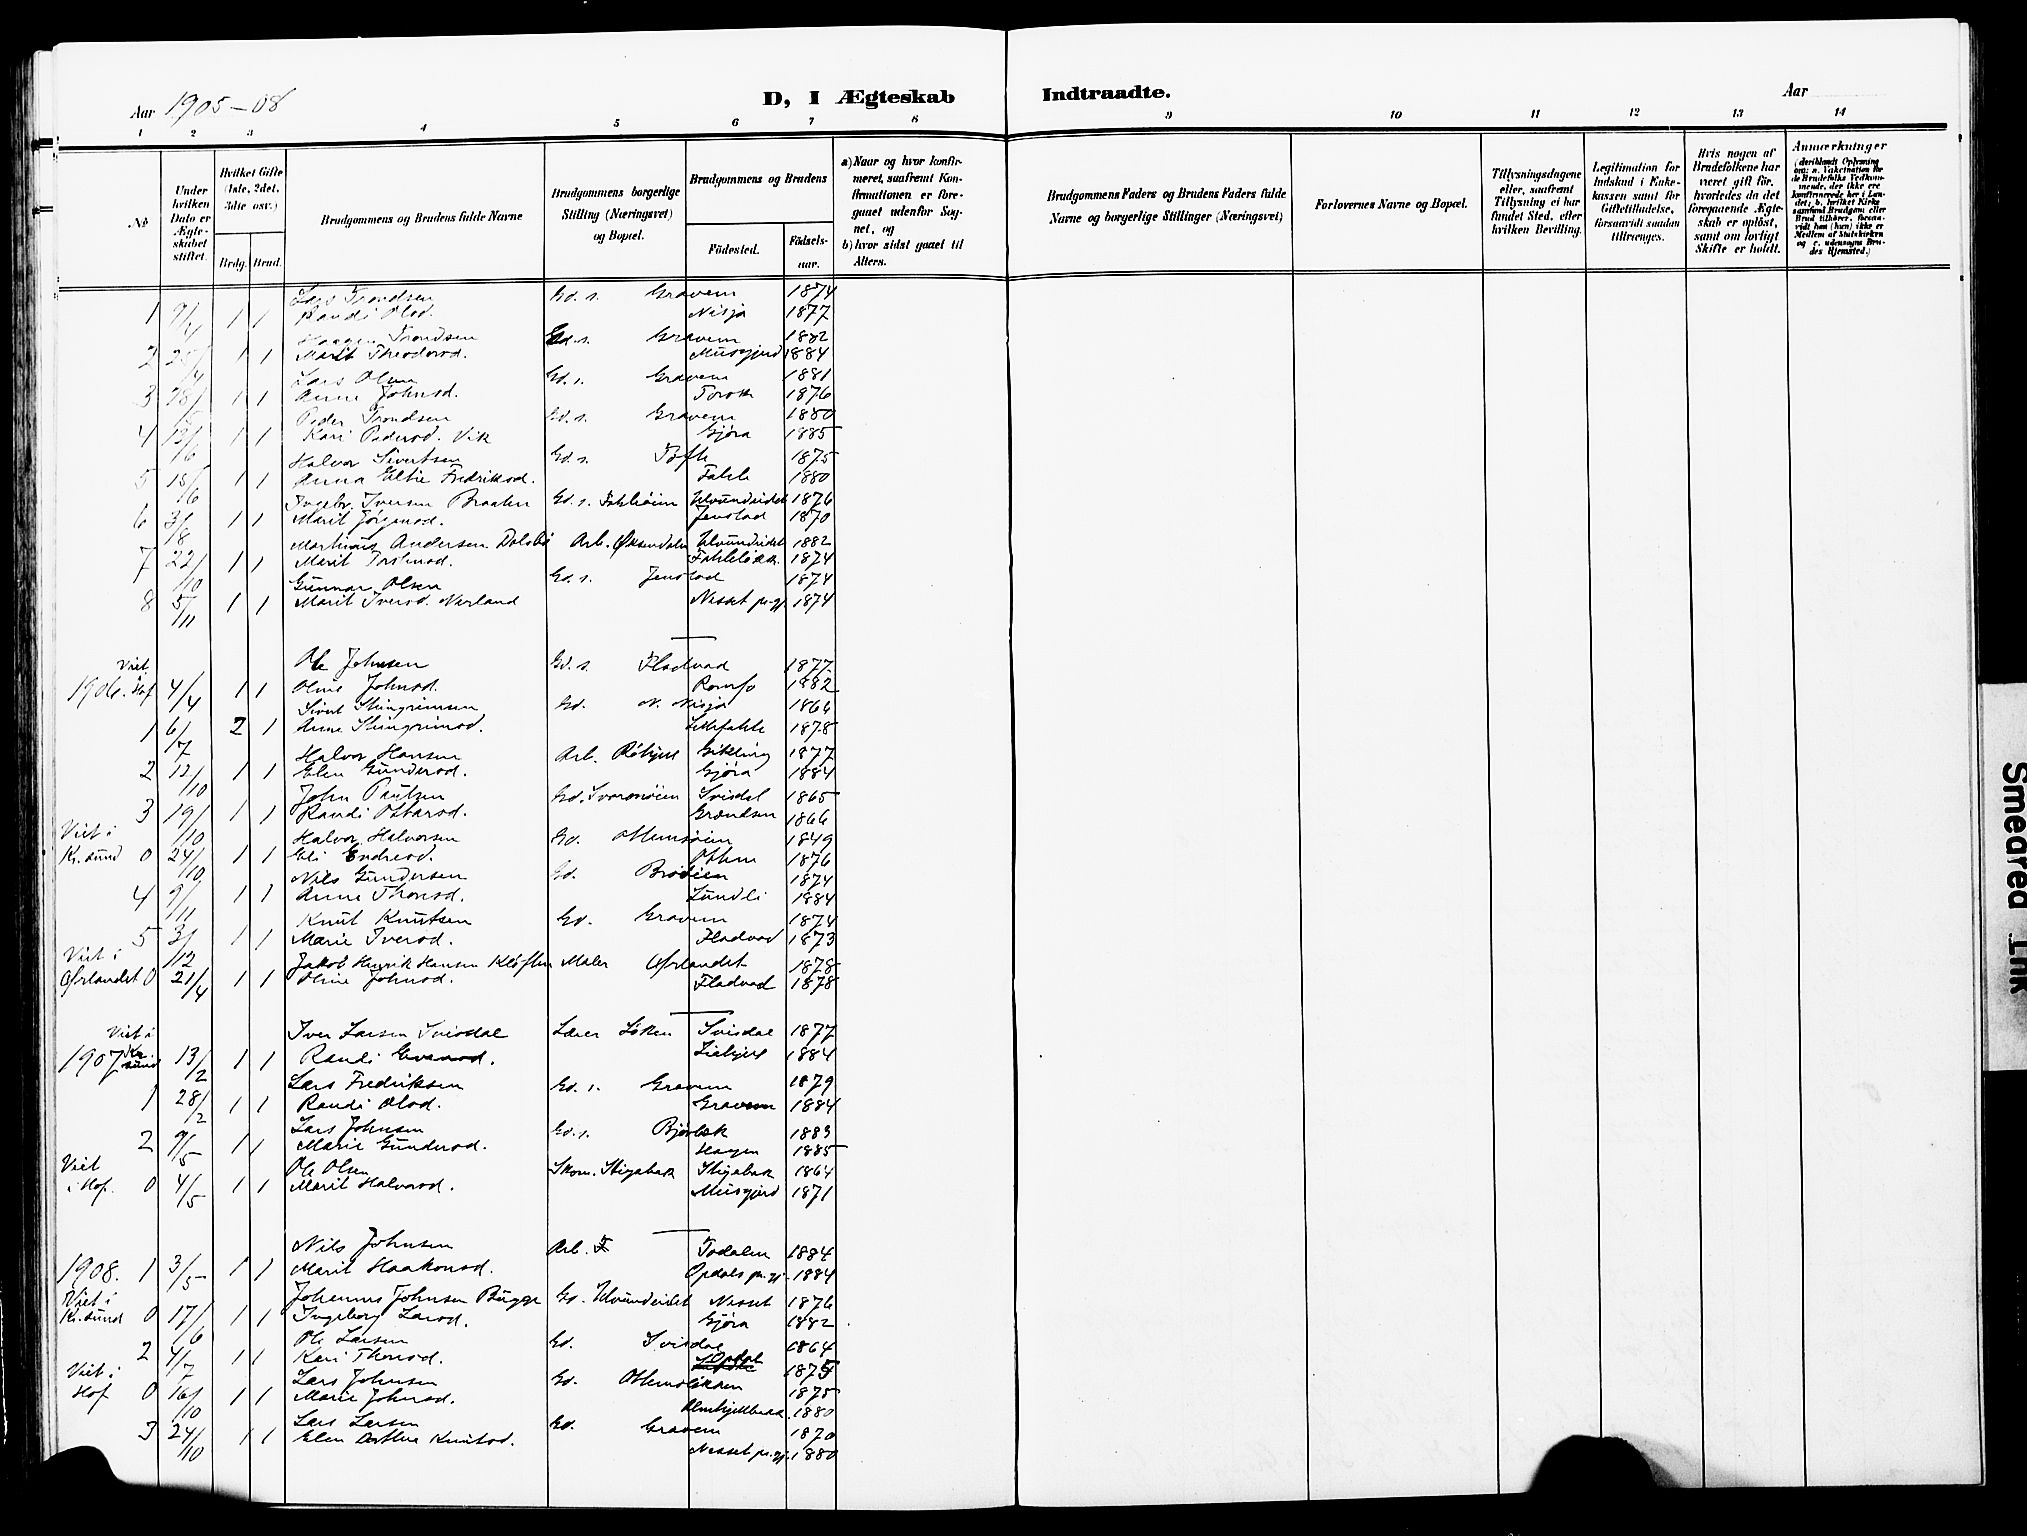 Aar 1905–08
D, I Ægteskab Indtraadte.
Aar
1 2 3 4 5 6 7 8 9 10 11 12 13 14
No
Under hvilken Dato er Ægteskabet stiftet.
Hvilket Gifte (1ste, 2det, 3die osv.)
Brdg. Brud.
Brudgommens og Brudens fulde Navne
Brudgommens borgerlige Stilling (Næringsvei) og Bopæl.
Brudgommens og Brudens
Fødested. Fødselsaar.
a) Naar og hvor konfirmeret, saafremt Konfirmationen er foregaaet udenfor Sognet, og
b) hvor sidst gaaet til Alters.
Brudgommens Faders og Brudens Faders fulde Navne og borgerlige Stillinger (Næringsvei)
Forlovernes Navne og Bopæl.
Tillysningsdagene eller, saafremt Tillysning ei har fundet Sted, efter hvilken Bevilling.
Legitimation for Indskud i Enkekassen samt for Giftetilladelse, forsaavidt saadan tiltrænges.
Hvis nogen af Brudefolkene har været gift før, hvorledes da det foregaaende Ægteskab er opløst, samt om lovligt Skifte er holdt.
Anmærkninger
(deriblandt Oplysning om: a. Vakcination for de Brudefolks Vedkommende, der ikke ere konfirmerede her i Landet; b. hvilket Kirkesamfund Brudgom eller Brud tilhører, forsaavidt han (hun) ikke er Medlem af Statskirken og c. udensogns Brudes Hjemsted.)
Lars Trondsen Gd. s. Gravem 1874
1 9/4 1 1 Randi Olsd. Nisja 1877
Haagen Trondsen Gd. s. Gravem 1882
2 25/4 1 1 Marit Theodorsd. Musgjerd 1884
Lars Olsen Gd. s. Gravem 1881
3 28/5 1 1 Anne Johnsd. Torske 1876
Peder Trondsen Gd. s. Gravem 1880
4 12/6 1 1 Kari Pedersd. Vik Gjøra 1885
Halvor Sivertsen Gd. s. Tofte 1875
5 15/6 1 1 Anna Eline Fredriksd. Fahle 1880
Ingebr. Iversen Braaten Gd. s. Fahleøien Ulvundeidet 1876
6 3/8 1 1 Marit Jørgensd. Jenstad 1870
Martinus Andersen Dalsbø Arb. Øksendalen Ulvundeidet 1882
7 22/10 1 1 Marit Torstensd. Fahleløkk. 1874
Gunnar Olsen Gd. s. Jenstad 1874
8 5/11 1 1 Marit Iversd. Nerland Nesset pr.gj. 1874
Viet i
Ole Johnsen Gd. s. Fladvad 1877
1906. Hof 4/4 1 1 Oline Johnsd. Romfo 1882
Sivert Steingrimsen Gd. N. Nisja 1866
1 6/7 2 1 Anne Steingrimsd. Lillefahle 1878
Halvor Hansen Arb. Røkjem Gikling 1877
2 12/10 1 1 Elen Gundersd. Gjøra 1884
John Paulsen Gd. Svorunøien Svisdal 1865
3 19/10 1 1 Randi Ostarsd. Grøndsen 1866
Viet i
Halvor Halvorsen Gd. Ottemsøien 1849
Kr.sund 0 24/10 1 1 Eli Endresd. Ottem 1876
Nils Gundersen Gd. Brøskien 1874
4 9/11 1 1 Anne Thoresd. Lundli 1884
Knut Knutsen Gd. Gravem 1874
5 3/12 1 1 Marie Iversd. Fladvad 1873
Viet i
Jakob Henrik Hansen Kløften Maler Ørlandet 1878
Ørlandet 0 21/4 1 1 Oline Johnsd. Fladvad 1878
Viet i
Iver Larsen Svisdal Lærer Løken Svisdal 1877
1907 Kr.sund 13/2 1 1 Randi Evensd. Liahjell 1884
Lars Fredriksen Gd. s. Gravem 1879
1 28/2 1 1 Randi Olsd. Gravem 1884
Lars Johnsen Gd. s. Bjørbæk 1883
2 9/5 1 1 Marit Gundersd. Hagen 1885
Viet
Ole Olsen Skom. Stigabak Stigabak 1864
i Hof. 0 4/5 1 1 Marit Halvorsd. Musgjerd 1871
Nils Johnsen Arb. Todalen 1884
1908. 1 3/5 1 1 Marit Haakonsd. Opdals pr.gj. 1884
Viet i
Johannes Johnsen Bugge Gd. Ulvundeidet Nesset 1876
Kr.sund 0 17/6 1 1 Ingeborg Larsd. Gjøra 1882
Ole Larsen Gd. Svisdal 1864
2 4/7 1 1 Kari Thoresd. Opdal 1875
Viet i
Lars Johnsen Gd. Ottemsløkken 1875
Hof 0 16/10 1 1 Marie Johnsd. Almskjellbakk. 1880
Lars Larsen Gd. Gravem 1870
3 24/10 1 1 Elen Dorthea Knutsd. Nesset pr.gj. 1880
Smeared Ink